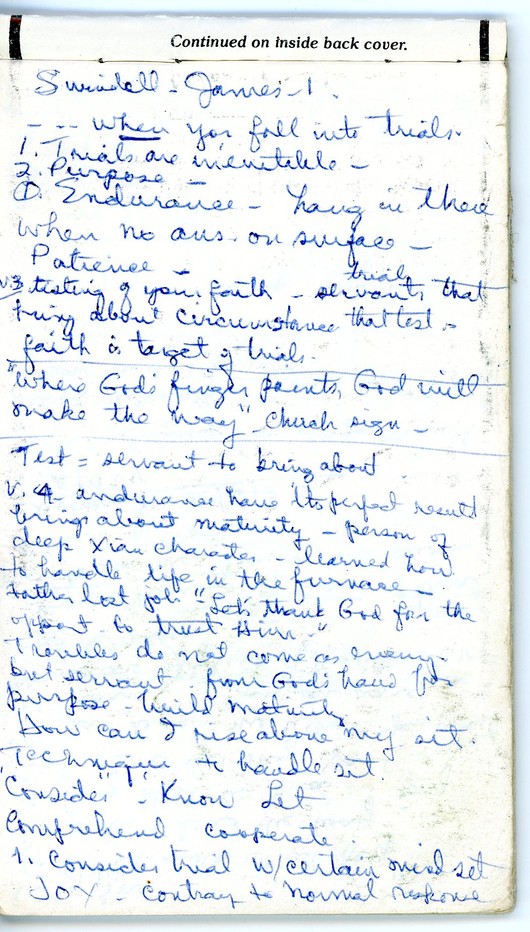 Continued on inside back cover.
Swindell - James - 1.
- -- when you fall into trials.
1. Trials are inevitable -
2. Purpose -
①. Endurance - hang in there
when no ans. on surface -
Patience -
trials
v3 testing of your faith - servants that
bring about circumstance that test -
faith is target of trials.
"Where God's finger points, God will
make the way" church sign -
Test = servant to bring about
v. 4 - endurance have its perfect result
brings about maturity - person of
deep Xian character - learned how
to handle life in the furnace -
Father lost job "Let's thank God for the
opport. to trust Him."
Troubles do not come as enemy
but servant from God's hand for
purpose - build maturity
How can I rise above my sit.
Techniques to handle sit.
"Consider" - Know Let
Comprehend cooperate.
1. Consider trial w/certain mind set
JOY - contrary to normal response